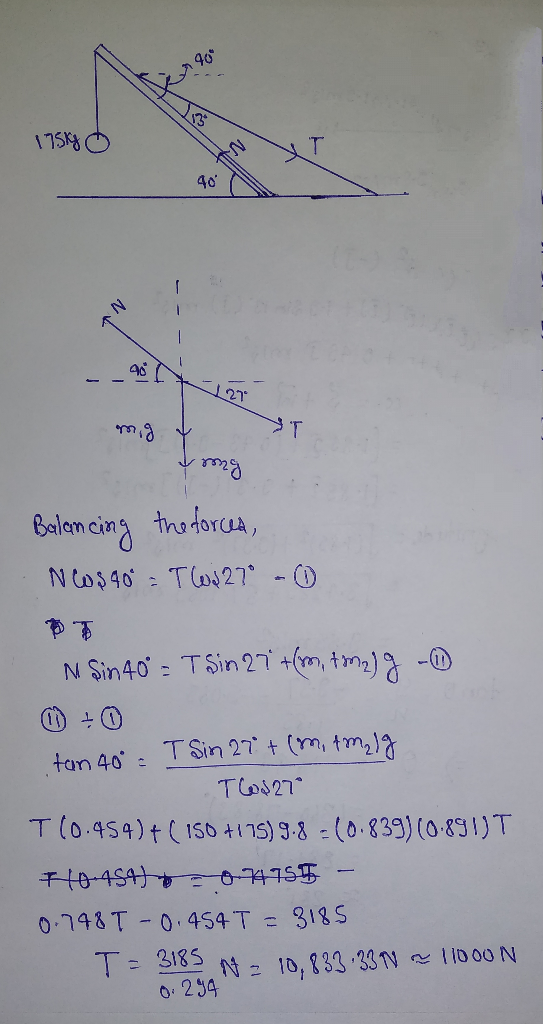 40°
13°
175kg
N
T
40°
N
40°
27°
T
m₁g
m₂g
Balancing the forces,
N Cos40° = T Cos27° - ①
N Sin40° = T Sin27° + (m₁+m₂)g - ⑪
⑪ ÷ ①
tan 40° = T Sin 27° + (m₁+m₂)g
T Cos27°
T (0.454) + (150 + 175) 9.8 = (0.839)(0.891) T
T (0.454) + = 0.7475T -
0.748T - 0.454T = 3185
T = 3185 N = 10,833.33N ≈ 11000N
0.294